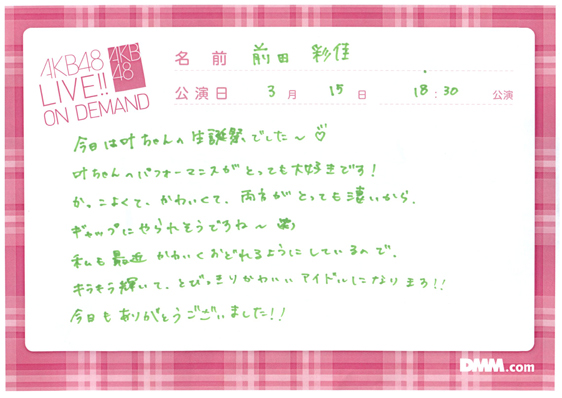 AKB48
LIVE!!
ON DEMAND
AKB
48
名前 前田 彩佳
公演日 3月 15日 18:30 公演
今日は叶ちゃんの生誕祭でした〜♡
叶ちゃんのパフォーマンスがとっても大好きです!
かっこよくて、かわいくて、両方がとっても濃いから、
ギャップにやられそうですね〜
私も最近かわいくおどれるようにしているので、
キラキラ輝いて、とびっきりかわいいアイドルになりまる!!
今日もありがとうございました!!
DMM.com